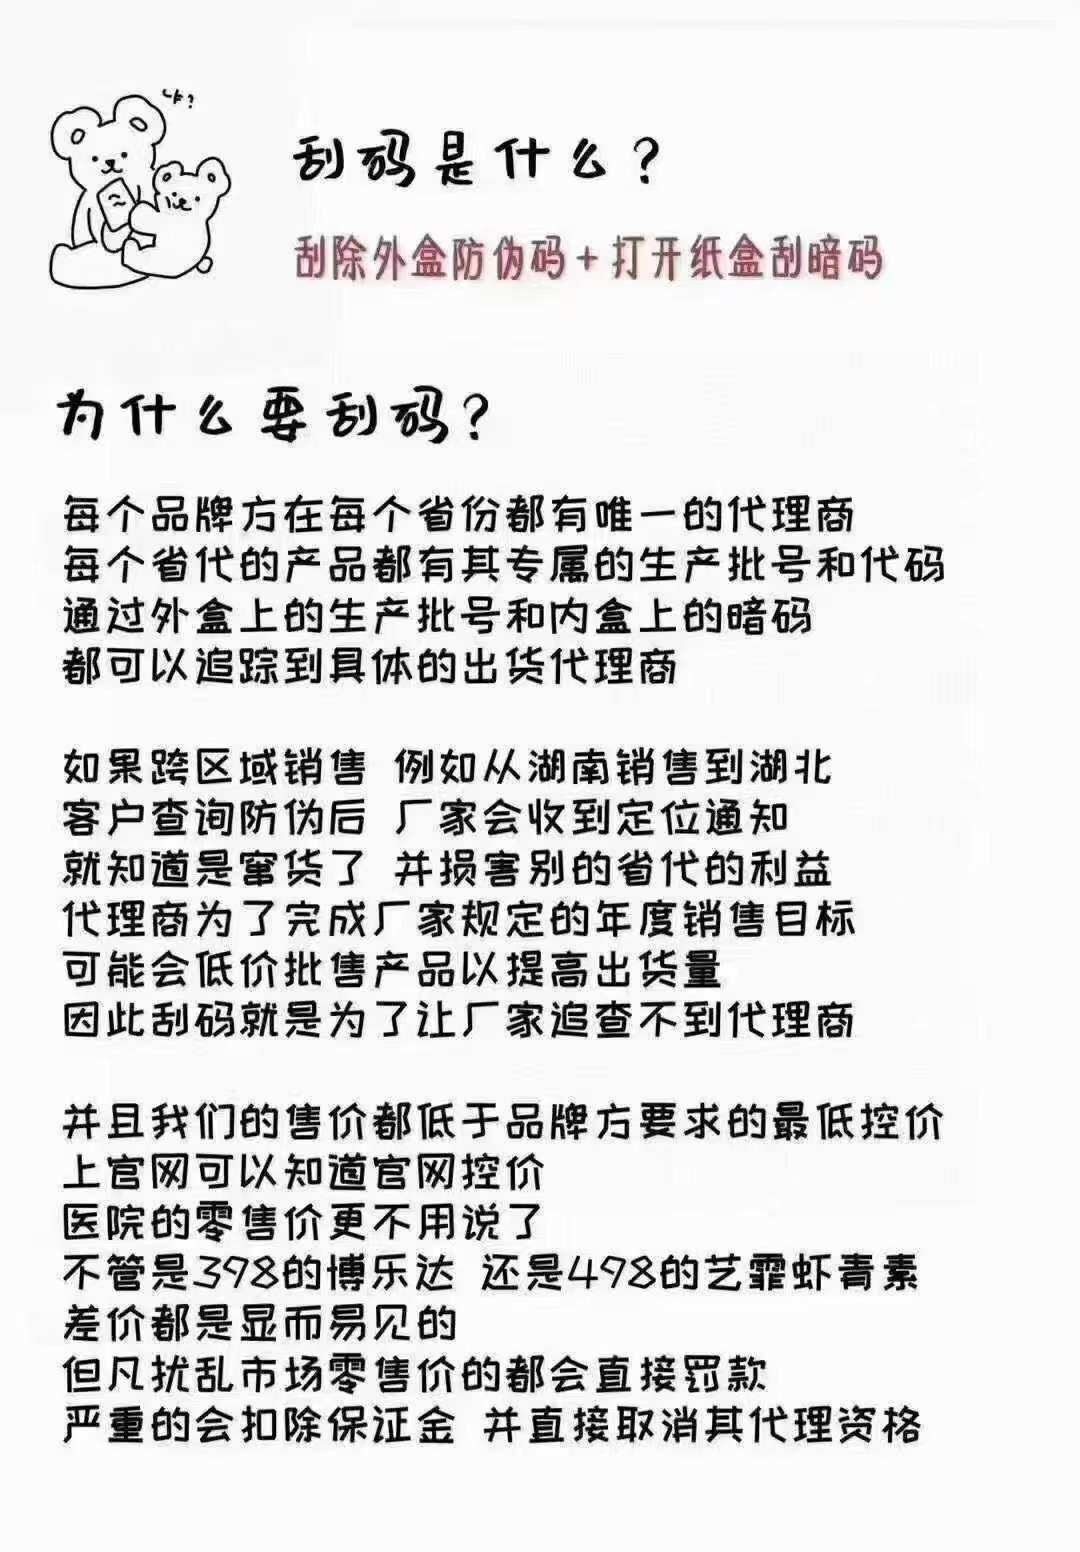 刮码是什么?
刮除外盒防伪码+打开纸盒刮暗码
为什么要刮码?
每个品牌方在每个省份都有唯一的代理商
每个省代的产品都有其专属的生产批号和代码
通过外盒上的生产批号和内盒上的暗码
都可以追踪到具体的出货代理商
如果跨区域销售 例如从湖南销售到湖北
客户查询防伪后 厂家会收到定位通知
就知道是窜货了 并损害别的省代的利益
代理商为了完成厂家规定的年度销售目标
可能会低价批售产品以提高出货量
因此刮码就是为了让厂家追查不到代理商
并且我们的售价都低于品牌方要求的最低控价
上官网可以知道官网控价
医院的零售价更不用说了
不管是398的博乐达 还是498的艺霏虾青素
差价都是显而易见的
但凡扰乱市场零售价的都会直接罚款
严重的会扣除保证金 并直接取消其代理资格